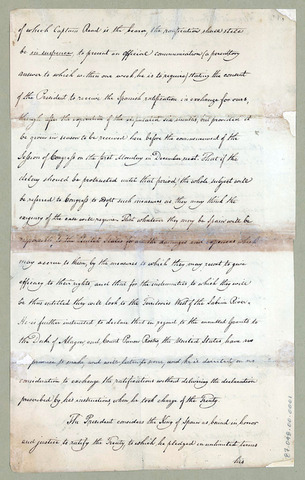 of which Captain Read is the bearer, the ratification should still
be to present an official communication (a peremtory
answer to which within one week he is to require) stating the consent
of the President to receive the Spanish ratification in exchange for ours,
though after the expiration of the stipulated six months, but provided it
be given in season to be received here before the commencement of the
Session of Congress on the first Monday in December next. That if the
delay should be protracted until that period, the whole subject will
be referred to Congress to adopt such measures as they may think the
exigency of the case will require. That whatever they may be Spain will be
responsible to the United States for all the damages and expenses which
may accrue to them, by the measures to which they may resort to give
efficacy to their rights, and that for the indemnities to which they will
be thus entitled they will look to the Territories West of the Sabine River.
He is further instructed to declare that in regard to the annulled grants to
the Duke of Alagon, and Count Punon Rostro the United States, have no
promise to make, and will listen to none, and he is directed in no
consideration to exchange the ratifications without delivering the declaration
prescribed by his instructions when he took charge of the Treaty.
The President considers the King of Spain as bound in honor
and justice to ratify the Treaty to which he pledged in unlimited terms
his